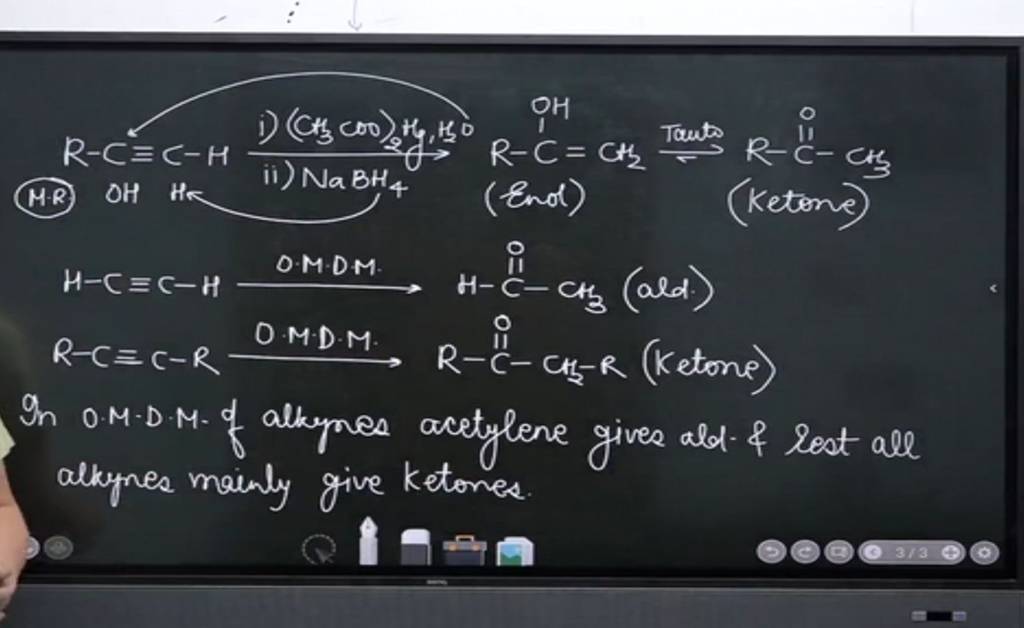 OH
O
R-C≡C-H i) (CH3COO)2Hg, H2O R-C=CH2 Tauto R-C-CH3
M.R. OH H ii) NaBH4 (Enol) (Ketone)
O
H-C≡C-H O.M.D.M. H-C-CH3 (ald.)
O
R-C≡C-R O.M.D.M. R-C-CH2-R (Ketone)
In O.M.D.M. of alkynes acetylene gives ald. & rest all
alkynes mainly give ketones.
3/3